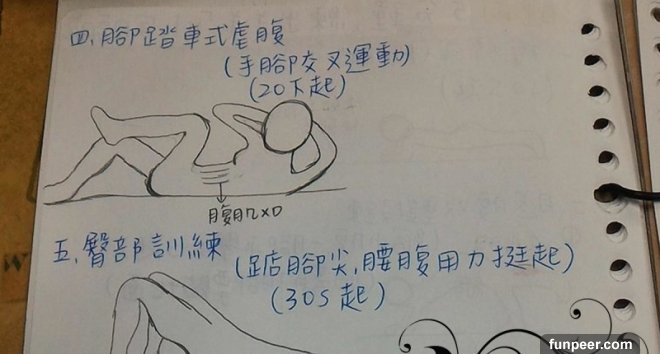 四、腳踏車式虐腹
(手腳交叉運動)
(20下起)
腹肌XD
五、臀部訓練
(踮腳尖,腰腹用力挺起)
(30S起)
funpeer.com